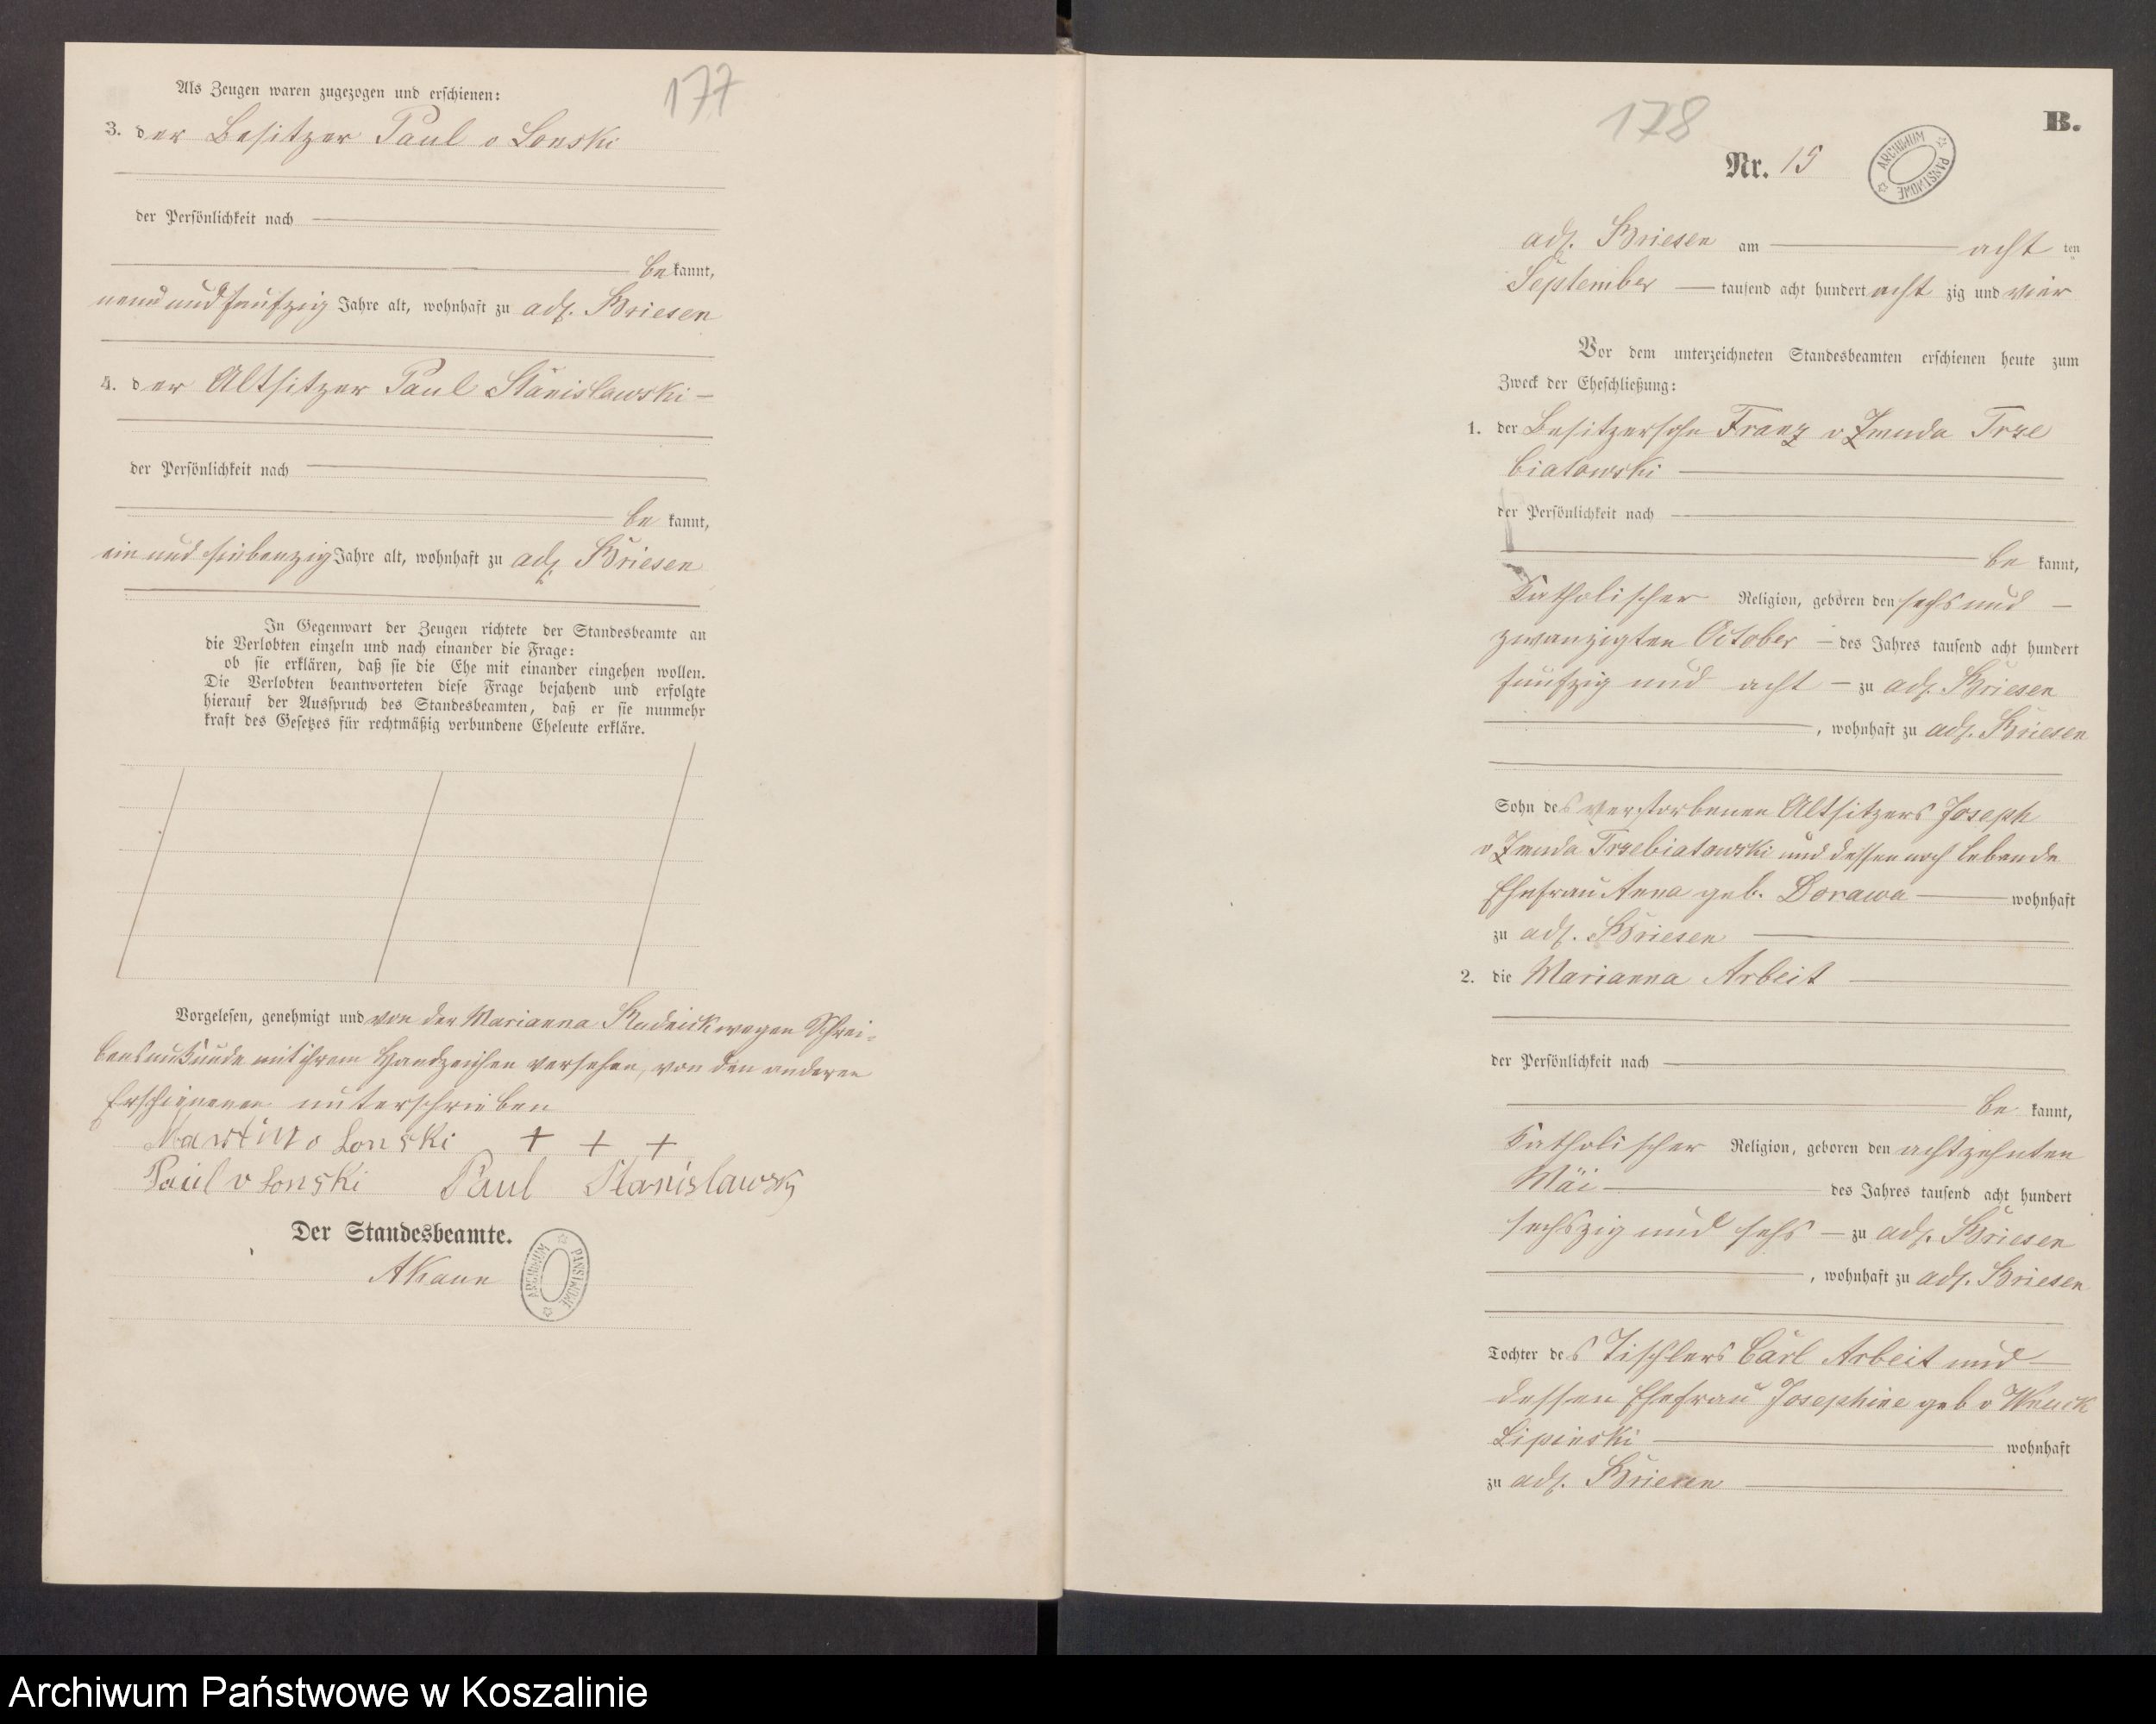 177
Als Zeugen waren zugezogen und erschienen:
3. der Besitzer Paul v Lonski
der Persönlichkeit nach
be kannt,
neun und funfzig Jahre alt, wohnhaft zu adl. Briesen
4. der Altsitzer Paul Stanislawski
der Persönlichkeit nach
be kannt,
ein und siebenzig Jahre alt, wohnhaft zu adl. Briesen
In Gegenwart der Zeugen richtete der Standesbeamte an
die Verlobten einzeln und nach einander die Frage:
ob sie erklären, daß sie die Ehe mit einander eingehen wollen.
Die Verlobten beantworteten diese Frage bejahend und erfolgte
hierauf der Ausspruch des Standesbeamten, daß er sie nunmehr
kraft des Gesetzes für rechtmäßig verbundene Eheleute erkläre.
Vorgelesen, genehmigt und von der Marianna wegen Schrei-
bensunkunde mit ihrem Handzeichen versehen, von den anderen
Erschienenen unterschrieben
Martin v Lonski + + +
Paul v Lonski Paul Stanislawsky
Der Standesbeamte.
ARCHIWUM PAŃSTWOWE
178
B.
Nr. 15
ARCHIWUM PAŃSTWOWE
adl. Briesen am acht ten
September tausend acht hundert acht zig und vier
Vor dem unterzeichneten Standesbeamten erschienen heute zum
Zweck der Eheschließung:
1. der Besitzersohn Franz v Zmuda Trze
biatowski
der Persönlichkeit nach
be kannt,
katholischer Religion, geboren den sechs und
zwanzigten October des Jahres tausend acht hundert
funfzig und acht zu adl. Briesen
, wohnhaft zu adl. Briesen
Sohn des verstorbenen Altsitzers Joseph
v Zmuda Trzebiatowski und dessen noch lebende
Ehefrau Anna geb. Dorawa wohnhaft
zu adl. Briesen
2. die Marianna Arbeit
der Persönlichkeit nach
be kannt,
katholischer Religion, geboren den achtzehnten
Mai des Jahres tausend acht hundert
sechszig und sechs zu adl. Briesen
, wohnhaft zu adl. Briesen
Tochter des Tischlers Carl Arbeit und
dessen Ehefrau Josephine geb v Wnuck
Lipinski wohnhaft
zu adl. Briesen
Archiwum Państwowe w Koszalinie